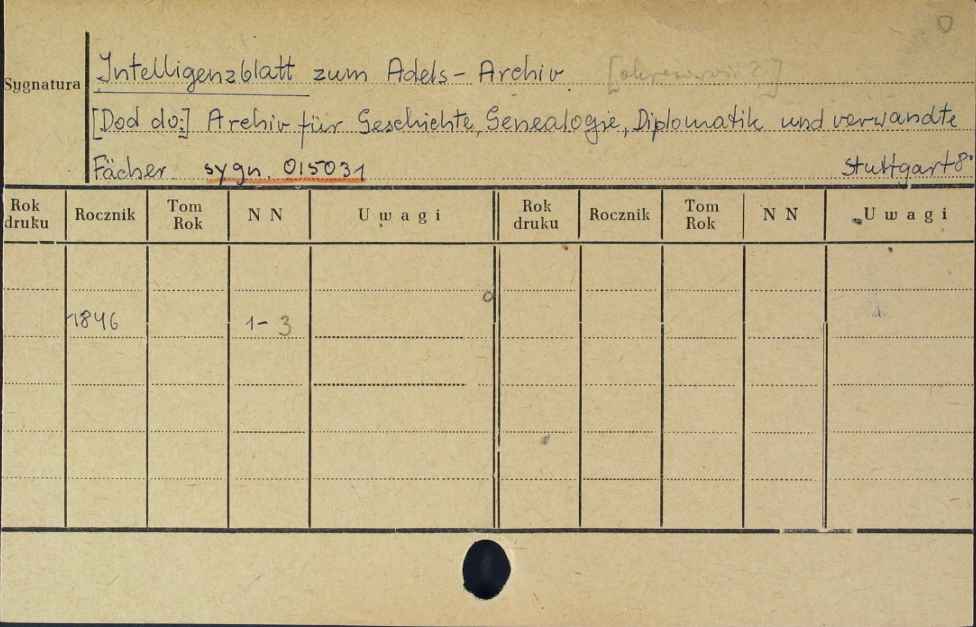 Sygnatura
Intelligenzblatt zum Adels-Archiv
[Dod do:] Archiv für Geschichte, Genealogie, Diplomatik und verwandte
Fächer. sygn. 015031 Stuttgart 8°
Rok druku Rocznik Tom Rok N N Uwagi Rok druku Rocznik Tom Rok N N Uwagi
1846 1-3